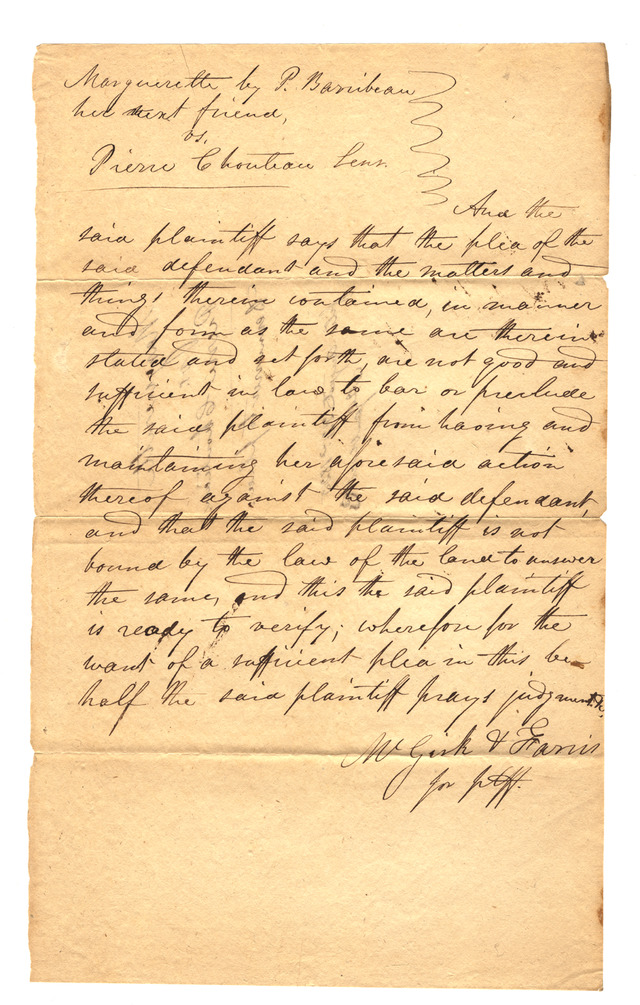 Marguerette by P. Barribeau
her next friend,
vs.
Pierre Chouteau Senr.
And the
said plaintiff says that the plea of the
said defendant and the matters and
things therein contained, in manner
and form as the same are therein
stated and set forth, are not good and
sufficient in law to bar or preclude
the said plaintiff from having and
maintaining her aforesaid action
thereof against the said defendant,
and that the said plaintiff is not
bound by the law of the land to answer
the same, and this the said plaintiff
is ready to verify; wherefore for the
want of a sufficient plea in this be-
half the said plaintiff prays judgment &c.
McGirk & Farris
for plff.